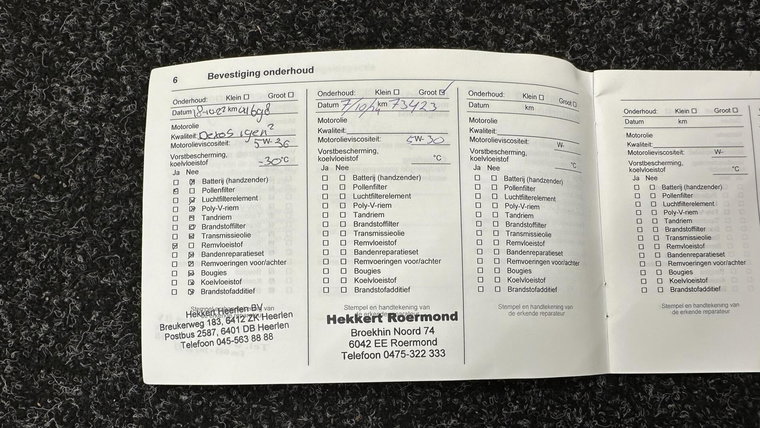 6 Bevestiging onderhoud
Onderhoud: Klein ☐ Groot ☐
Datum km
Motorolie
Kwaliteit: Dexos 1 gen²
Motorolieviscositeit: 5W-30
Vorstbescherming,
koelvloeistof -30°C
Ja Nee
Batterij (handzender)
Pollenfilter
Luchtfilterelement
Poly-V-riem
Tandriem
Brandstoffilter
Transmissieolie
Remvloeistof
Bandenreparatieset
Remvoeringen voor/achter
Bougies
Koelvloeistof
Brandstofadditief
Hekkert Heerlen BV
Breukerweg 183, 6412 ZK Heerlen
Postbus 2587, 6401 DB Heerlen
Telefoon 045-563 88 88
Onderhoud: Klein ☐ Groot ☑
Datum km 73423
Motorolie
Kwaliteit:
Motorolieviscositeit: 5W-30
Vorstbescherming,
koelvloeistof °C
Ja Nee
Batterij (handzender)
Pollenfilter
Luchtfilterelement
Poly-V-riem
Tandriem
Brandstoffilter
Transmissieolie
Remvloeistof
Bandenreparatieset
Remvoeringen voor/achter
Bougies
Koelvloeistof
Brandstofadditief
Stempel en handtekening van
Hekkert Roermond
Broekhin Noord 74
6042 EE Roermond
Telefoon 0475-322 333
Onderhoud: Klein ☐ Groot ☐
Datum km
Motorolie
Kwaliteit:
Motorolieviscositeit: W-
Vorstbescherming,
koelvloeistof °C
Ja Nee
Batterij (handzender)
Pollenfilter
Luchtfilterelement
Poly-V-riem
Tandriem
Brandstoffilter
Transmissieolie
Remvloeistof
Bandenreparatieset
Remvoeringen voor/achter
Bougies
Koelvloeistof
Brandstofadditief
Stempel en handtekening van
de erkende reparateur
Onderhoud: Klein ☐ Groot ☐
Datum km
Motorolie
Kwaliteit:
Motorolieviscositeit: W-
Vorstbescherming,
koelvloeistof °C
Ja Nee
Batterij (handzender)
Pollenfilter
Luchtfilterelement
Poly-V-riem
Tandriem
Brandstoffilter
Transmissieolie
Remvloeistof
Bandenreparatieset
Remvoeringen voor/achter
Bougies
Koelvloeistof
Brandstofadditief
Stempel en handtekening van
de erkende reparateur